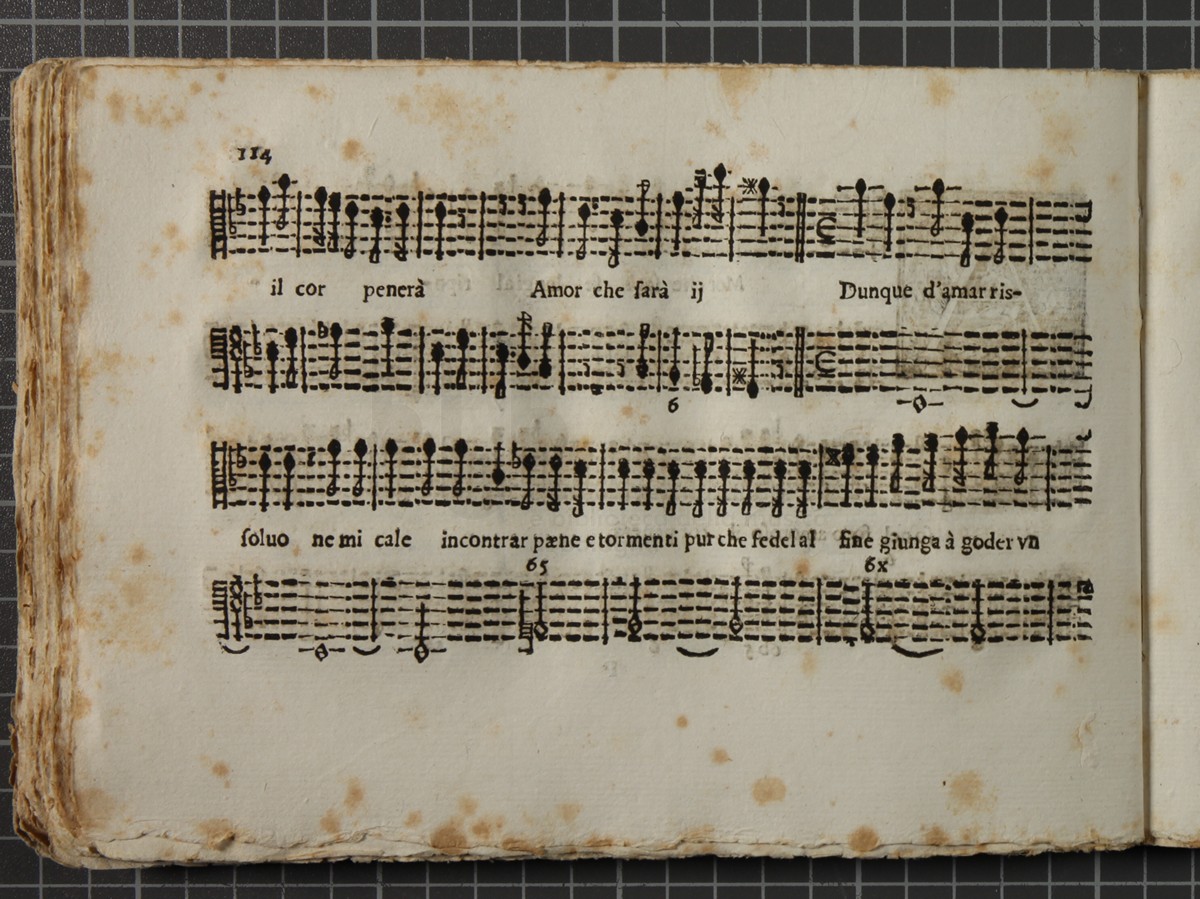 114
il cor penerà Amor che sarà ij Dunque d'amar ris-
6
soluo ne mi cale incontrar pæne e tormenti pur che fedel al fine giunga à goder vn
65 6x